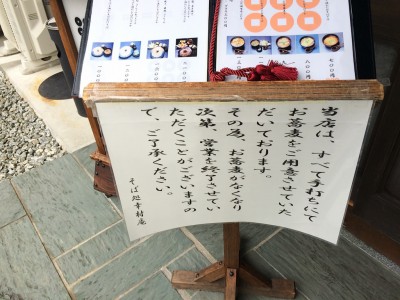 当店は、すべて手打ちにて
お蕎麦をご用意させていた
だいております。
その為、お蕎麦がなくなり
次第、営業を終了させてい
ただくことがございますの
で、ご了承ください。
そば処幸村庵